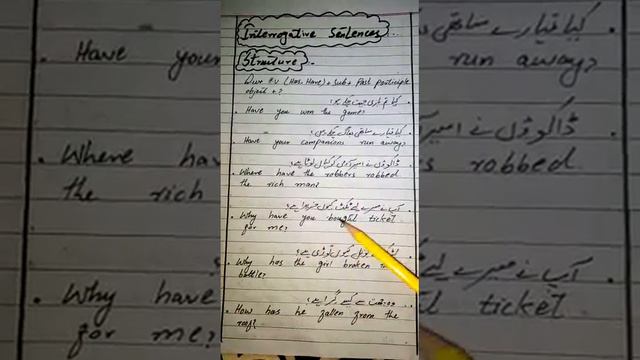 Interrogative Sentences
Structure
H.V (Has, Have) + Sub + Past participle
object + ?
کیا تم بازی جیت چکے ہو؟
Have you won the game?
کیا تمہارے ساتھی بھاگ چکے ہیں؟
Have your companions run away?
ڈاکوؤں نے امیر آدمی کو کہاں لوٹا ہے؟
Where have the robbers robbed
the rich man?
آپ نے میرے لیے ٹکٹ کیوں خریدا ہے؟
Why have you bought ticket
for me?
نے بوتل کیوں توڑی ہے؟
Why has the girl broken the
bottle?
وہ چھت سے کیسے گرا ہے؟
How has he fallen from the
roof?